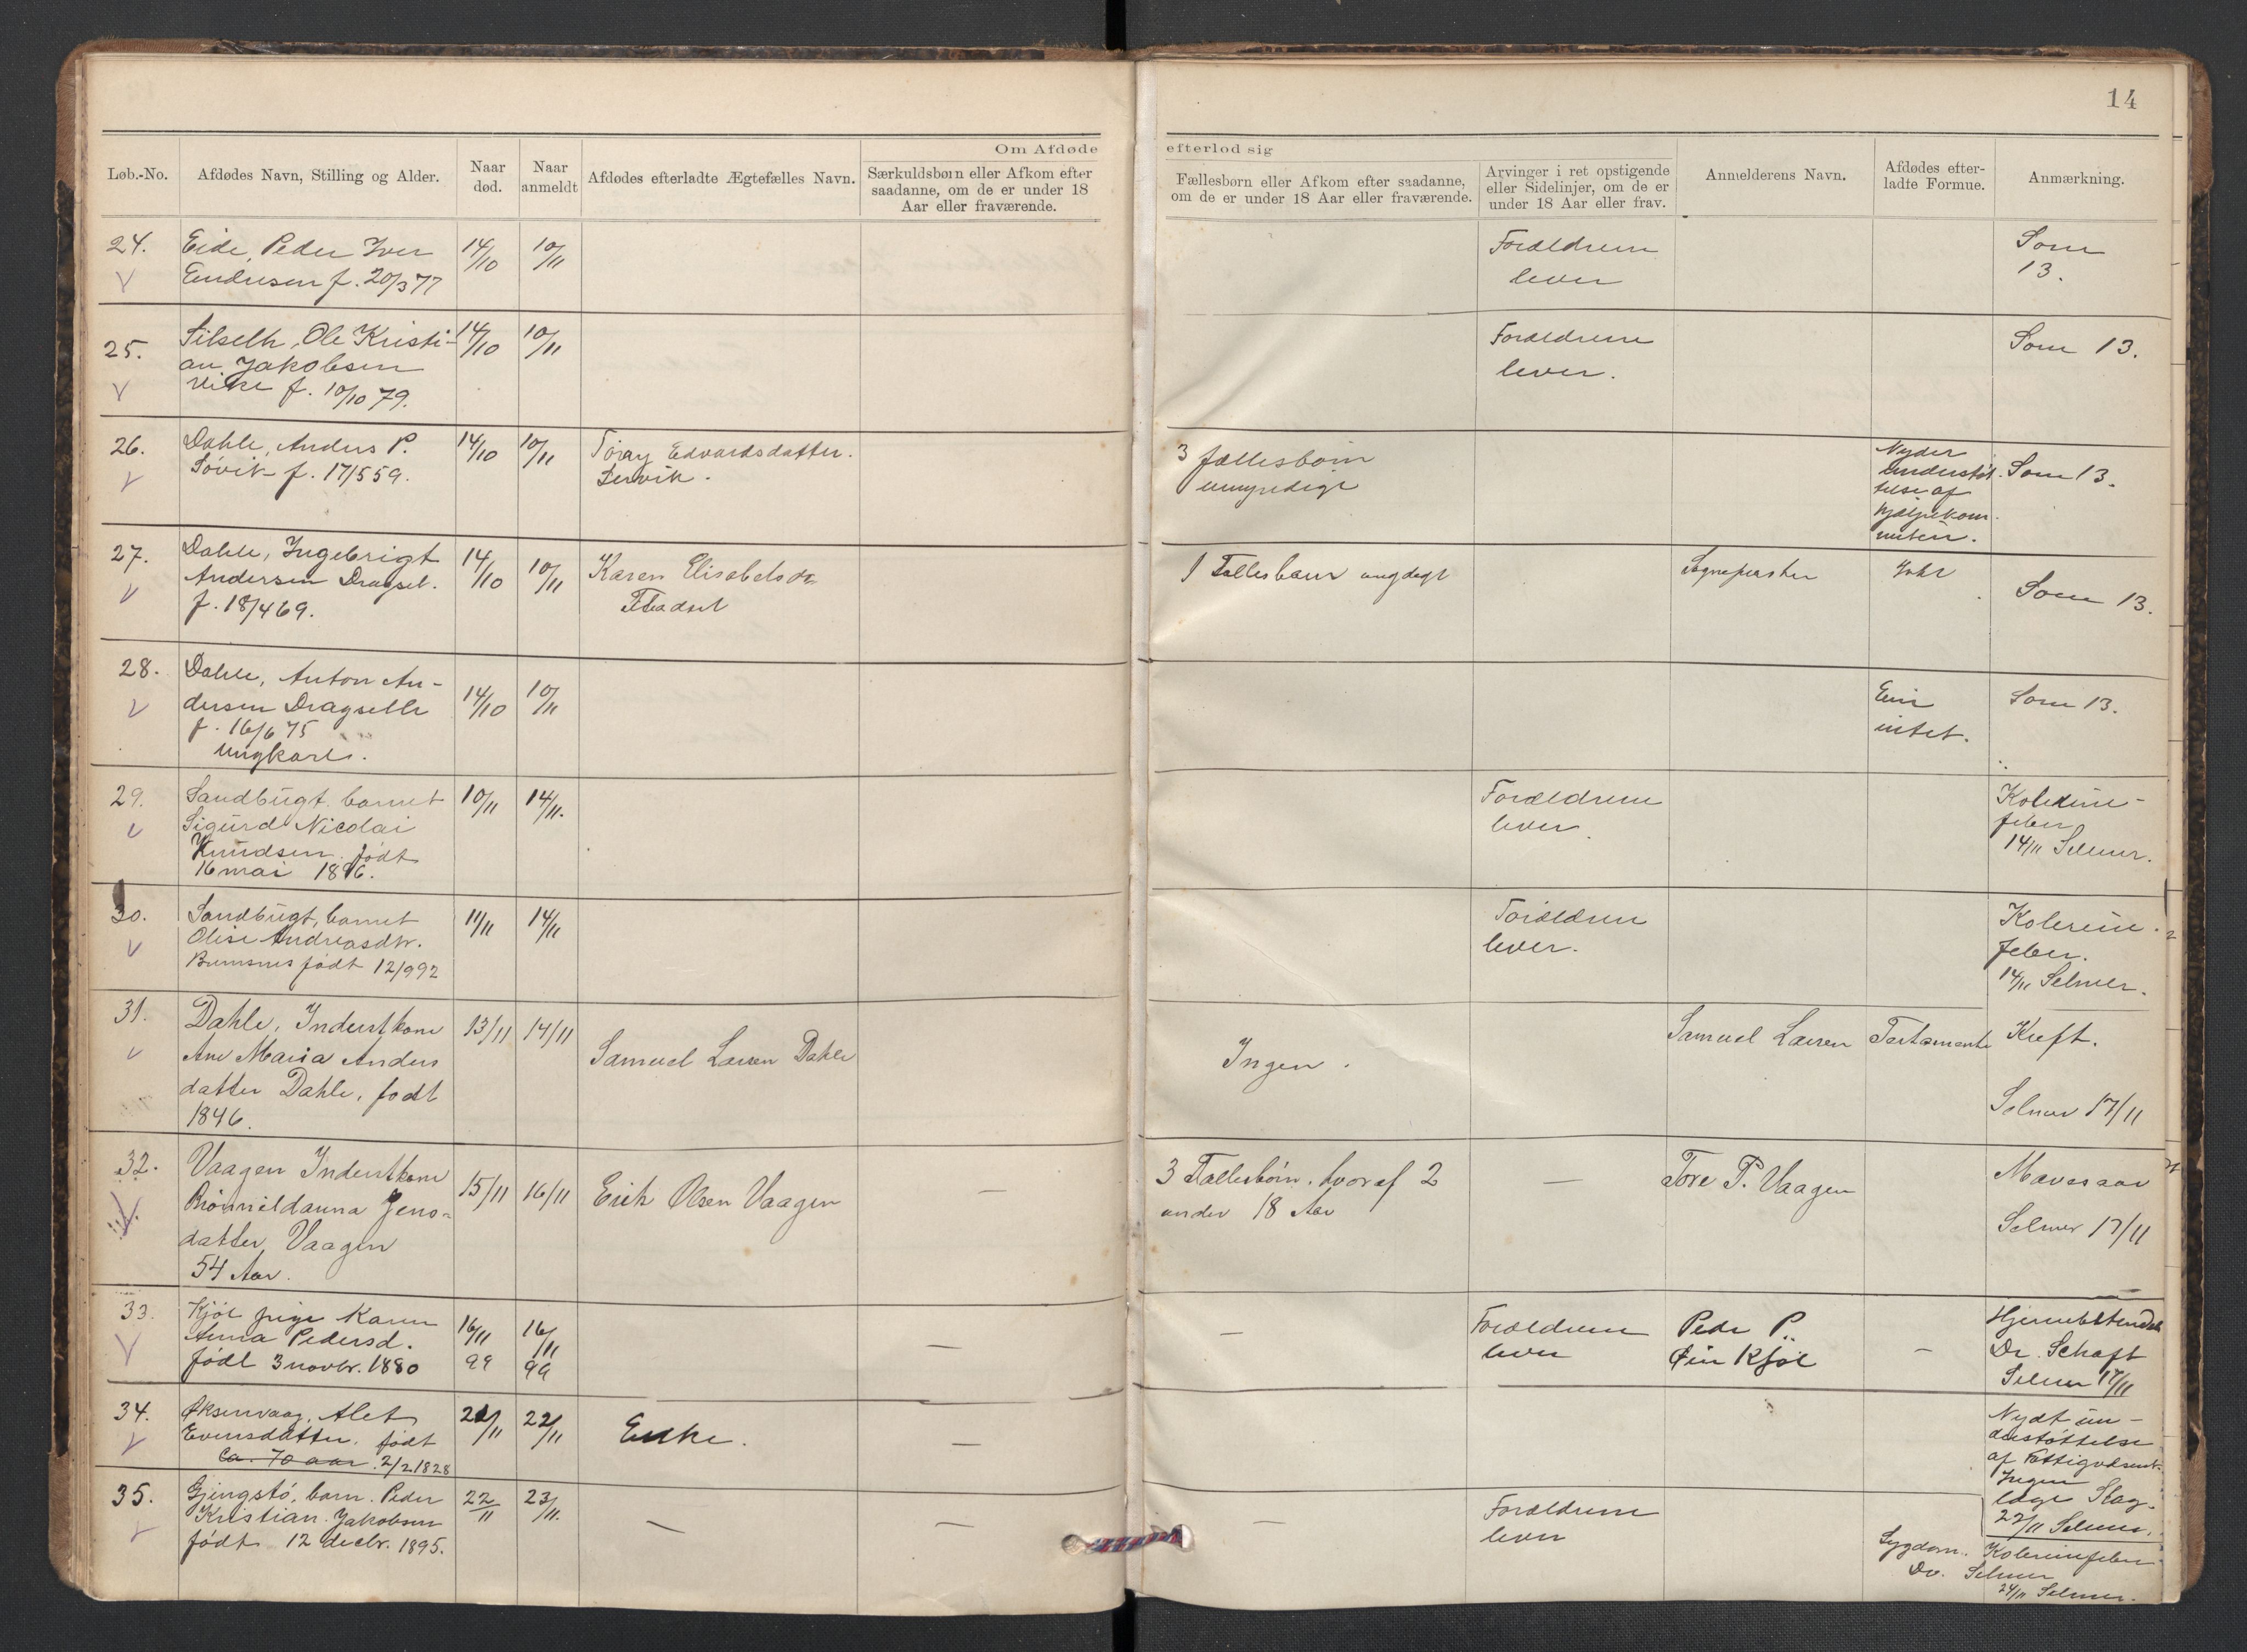 14
Om Afdøde
efterlod sig
Løb.-No.
Afdødes Navn, Stilling og Alder.
Naar
død.
Naar
anmeldt
Afdødes efterladte Ægtefælles Navn.
Særkuldsbørn eller Afkom efter
saadanne, om de er under 18
Aar eller fraværende.
Fællesbørn eller Afkom efter saadanne,
om de er under 18 Aar eller fraværende.
Arvinger i ret opstigende
eller Sidelinjer, om de er
under 18 Aar eller frav.
Anmelderens Navn.
Afdødes efter-
ladte Formue.
Anmærkning.
24.
Eide, Peder Iver
Endresen f. 20/3 77
14/10
10/11
Forældrene
lever
Som
13.
25.
Ole Kristi-
an Jakobsen
f. 10/10 79.
14/10
10/11
Forældrene
lever.
Som 13.
26.
Dahle, Anders P.
Søvik f. 17/5 59.
14/10
10/11
Edvardsdatter
3 fællesbørn
umyndige
Nyder
understøt-
telse af
hjælpekom-
miteen.
Som 13.
27.
Dahle, Ingebrigt
Andersen Dragset.
f. 18/4 69.
14/10
10/11
Karen
1 Fællesbarn
Sognepresten
Som 13.
28.
Dahle, Anton An-
dersen Dragseth
f. 16/6 75
Ungkarl.
14/10
10/11
Eier
intet.
Som 13.
29.
Sandbugt. barnet
Sigurd Nicolai
Knudsen. født
16 mai 1896.
10/11
14/11.
Forældrene
lever.
Kolerine-
feber
14/11 Selmer.
30.
Sandbugt, barnet
Olise Andreasdtr.
født 12/9 92
11/11
14/11
Forældrene
lever.
Kolerine-
feber.
14/11 Selmer.
31.
Dahle, Inderstkone
Ane Maria Anders
datter Dahle, født
1846.
13/11
14/11
Samuel Larsen Dahle
Ingen.
Samuel Larsen
Testamente
Kreft.
Selmer 17/11
32.
Vaagen Inderstkone
Jens-
datter Vaagen
54 Aar.
15/11
16/11
Erik Olsen Vaagen
—
3 Fællesbørn. hvoraf 2
under 18 Aar
—
Tore P. Vaagen
Mavesaar
Selmer 17/11
33.
Kjøl pige Karen
Anna Pedersd.
født 3 novbr. 1880
16/11
99
16/11
99
—
—
Forældrene
lever
Peder P.
Kjøl
—
Dr. Schaft
Selmer 17/11
34.
Øksenvaag, Alet
Evensdatter. født
Ca. 70 aar. 2/2 1828
21/11
22/11
Enke.
—
Nydt un-
derstøttelse
af Fattigvæsenet.
Ingen
læge
22/11 Selmer.
35.
Gjengstø, barn. Peder
Kristian Jakobsen
født 12 decbr. 1895.
22/11
23/11.
—
—
—
Forældrene
lever
Sygdom. Kolerinefeber
Dr. Selmer
24/11 Selmer.